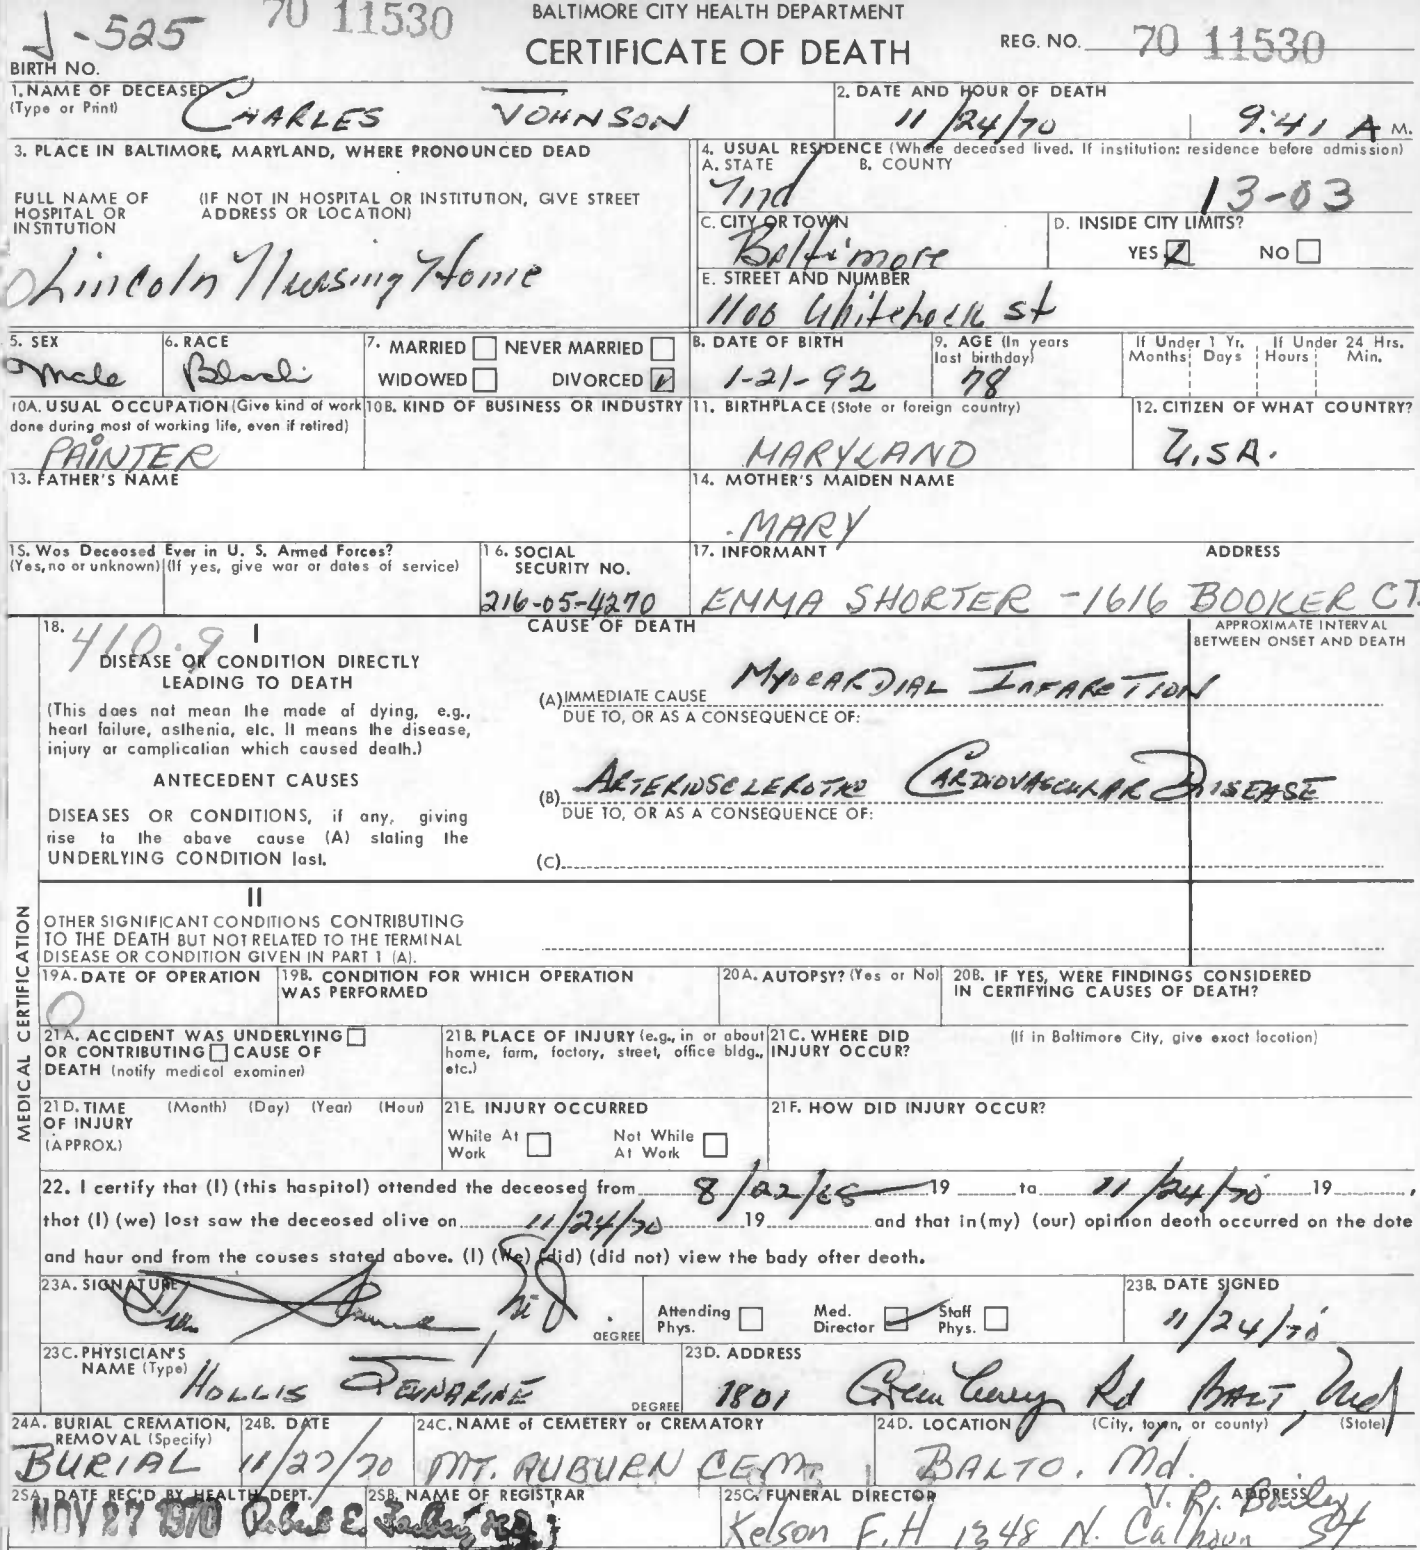 J-525
70 11530
BALTIMORE CITY HEALTH DEPARTMENT
CERTIFICATE OF DEATH
REG. NO. 70 11530
BIRTH NO.
1. NAME OF DECEASED
(Type or Print)
CHARLES JOHNSON
2. DATE AND HOUR OF DEATH
11/24/70 9:41 A M.
3. PLACE IN BALTIMORE, MARYLAND, WHERE PRONOUNCED DEAD
FULL NAME OF HOSPITAL OR INSTITUTION
(IF NOT IN HOSPITAL OR INSTITUTION, GIVE STREET ADDRESS OR LOCATION)
Lincoln Nursing Home
4. USUAL RESIDENCE (Where deceased lived. If institution: residence before admission)
A. STATE B. COUNTY
Md 13-03
C. CITY OR TOWN
Baltimore
D. INSIDE CITY LIMITS?
YES NO
E. STREET AND NUMBER
1100 Whitelock St
5. SEX
Male
6. RACE
Black
7. MARRIED NEVER MARRIED
WIDOWED DIVORCED
8. DATE OF BIRTH
1-21-92
9. AGE (In years last birthday)
78
If Under 1 Yr. If Under 24 Hrs.
Months Days Hours Min.
10A. USUAL OCCUPATION (Give kind of work done during most of working life, even if retired)
PAINTER
10B. KIND OF BUSINESS OR INDUSTRY
11. BIRTHPLACE (State or foreign country)
MARYLAND
12. CITIZEN OF WHAT COUNTRY?
U.S.A.
13. FATHER'S NAME
14. MOTHER'S MAIDEN NAME
MARY
15. Was Deceased Ever in U. S. Armed Forces?
(Yes, no or unknown) (If yes, give war or dates of service)
16. SOCIAL SECURITY NO.
216-05-4270
17. INFORMANT ADDRESS
EMMA SHORTER - 1616 BOOKER CT.
18. 410.9 I
DISEASE OR CONDITION DIRECTLY
LEADING TO DEATH
(This does not mean the mode of dying, e.g.,
heart failure, asthenia, etc. It means the disease,
injury or complication which caused death.)
ANTECEDENT CAUSES
DISEASES OR CONDITIONS, if any, giving
rise to the above cause (A) stating the
UNDERLYING CONDITION last.
CAUSE OF DEATH
APPROXIMATE INTERVAL
BETWEEN ONSET AND DEATH
(A) IMMEDIATE CAUSE MYOCARDIAL INFARCTION
DUE TO, OR AS A CONSEQUENCE OF:
(B) ARTERIOSCLEROTIC CARDIOVASCULAR DISEASE
DUE TO, OR AS A CONSEQUENCE OF:
(C)
II
OTHER SIGNIFICANT CONDITIONS CONTRIBUTING
TO THE DEATH BUT NOT RELATED TO THE TERMINAL
DISEASE OR CONDITION GIVEN IN PART 1 (A).
MEDICAL CERTIFICATION
19A. DATE OF OPERATION
19B. CONDITION FOR WHICH OPERATION
WAS PERFORMED
20A. AUTOPSY? (Yes or No)
20B. IF YES, WERE FINDINGS CONSIDERED
IN CERTIFYING CAUSES OF DEATH?
21A. ACCIDENT WAS UNDERLYING
OR CONTRIBUTING CAUSE OF
DEATH (notify medical examiner)
21B. PLACE OF INJURY (e.g., in or about
home, farm, factory, street, office bldg.,
etc.)
21C. WHERE DID
INJURY OCCUR?
(If in Baltimore City, give exact location)
21D. TIME (Month) (Day) (Year) (Hour)
OF INJURY
(APPROX.)
21E. INJURY OCCURRED
While At Work Not While At Work
21F. HOW DID INJURY OCCUR?
22. I certify that (I) (this hospital) attended the deceased from 8/22/68 19 to 11/24/70 19 ,
that (I) (we) last saw the deceased alive on 11/24/70 19 and that in (my) (our) opinion death occurred on the date
and hour and from the causes stated above. (I) (We) (did) (did not) view the body after death.
23A. SIGNATURE
DEGREE
Attending Phys. Med. Director Staff Phys.
23B. DATE SIGNED
11/24/70
23C. PHYSICIAN'S
NAME (Type)
HOLLIS
DEGREE
23D. ADDRESS
1801 Rd BALT, Md
24A. BURIAL CREMATION,
REMOVAL (Specify)
BURIAL
24B. DATE
11/27/70
24C. NAME of CEMETERY or CREMATORY
MT. AUBURN CEM.
24D. LOCATION (City, town, or county) (State)
BALTO. Md.
25A. DATE REC'D BY HEALTH DEPT.
NOV 27 1970
25B. NAME OF REGISTRAR
Robert E. Farber, M.D.
25C. FUNERAL DIRECTOR ADDRESS
V. R. Bailey
Kelson F.H 1348 N. Calhoun St